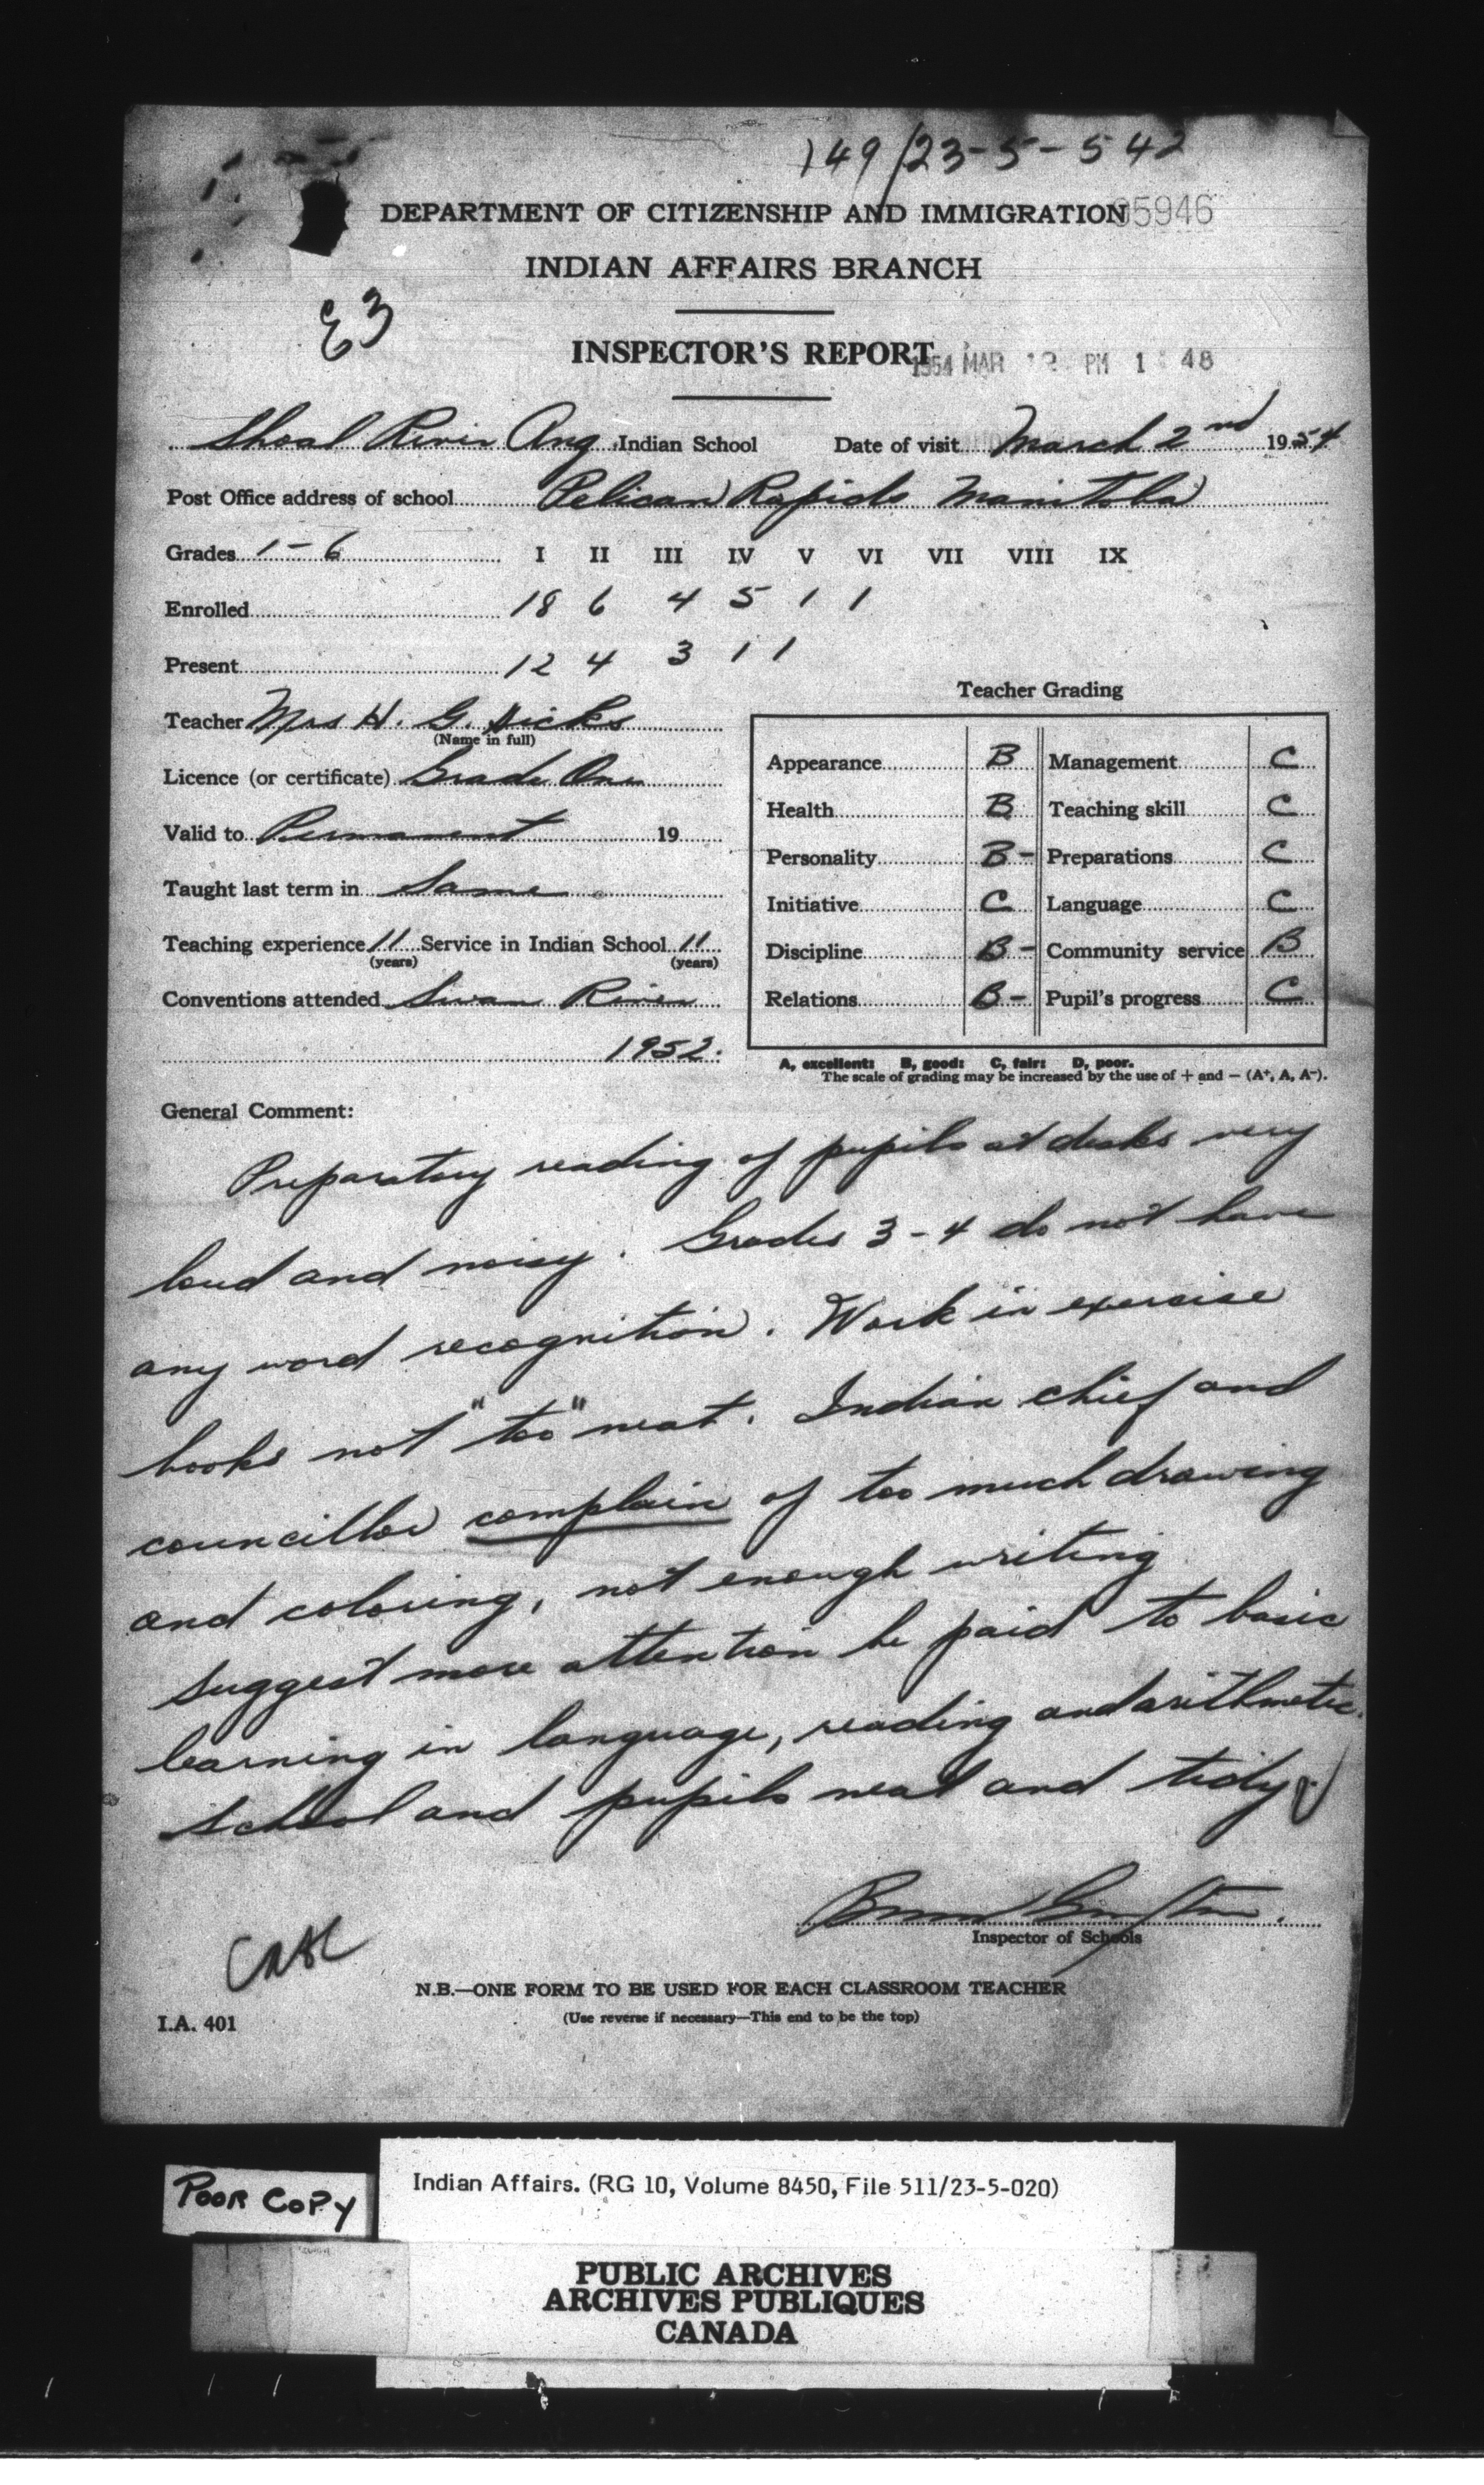 149/23-5-542
DEPARTMENT OF CITIZENSHIP AND IMMIGRATION 5946
INDIAN AFFAIRS BRANCH
E3
INSPECTOR'S REPORT
1954 MAR PM 1 48
Shoal River Ang Indian School Date of visit March 2nd 1954
Post Office address of school Pelican Rapids Manitoba
Grades 1-6 I II III IV V VI VII VIII IX
Enrolled 18 6 4 5 1 1
Present 12 4 3 1 1
Teacher Grading
Teacher Mrs H. G. Hicks
(Name in full)
Licence (or certificate) Grade One
Valid to Permanent 19
Taught last term in Same
Teaching experience 11 Service in Indian School 11
(years) (years)
Conventions attended Swan River
1952.
Appearance B Management C
Health B Teaching skill C
Personality B- Preparations C
Initiative C Language C
Discipline B- Community service B
Relations B- Pupil's progress C
A, excellent: B, good: C, fair: D, poor.
The scale of grading may be increased by the use of + and − (A+, A, A-).
General Comment:
Preparatory reading of pupils at desks very
loud and noisy. Grades 3-4 do not have
any word recognition. Work in exercise
books not "too" neat. Indian chief and
councillor complain of too much drawing
and coloring, not enough writing
suggest more attention be paid to basic
learning in language, reading and arithmetic.
School and pupils neat and tidy.
Inspector of Schools
N.B.—ONE FORM TO BE USED FOR EACH CLASSROOM TEACHER
(Use reverse if necessary—This end to be the top)
I.A. 401
POOR COPY
Indian Affairs. (RG 10, Volume 8450, File 511/23-5-020)
PUBLIC ARCHIVES
ARCHIVES PUBLIQUES
CANADA